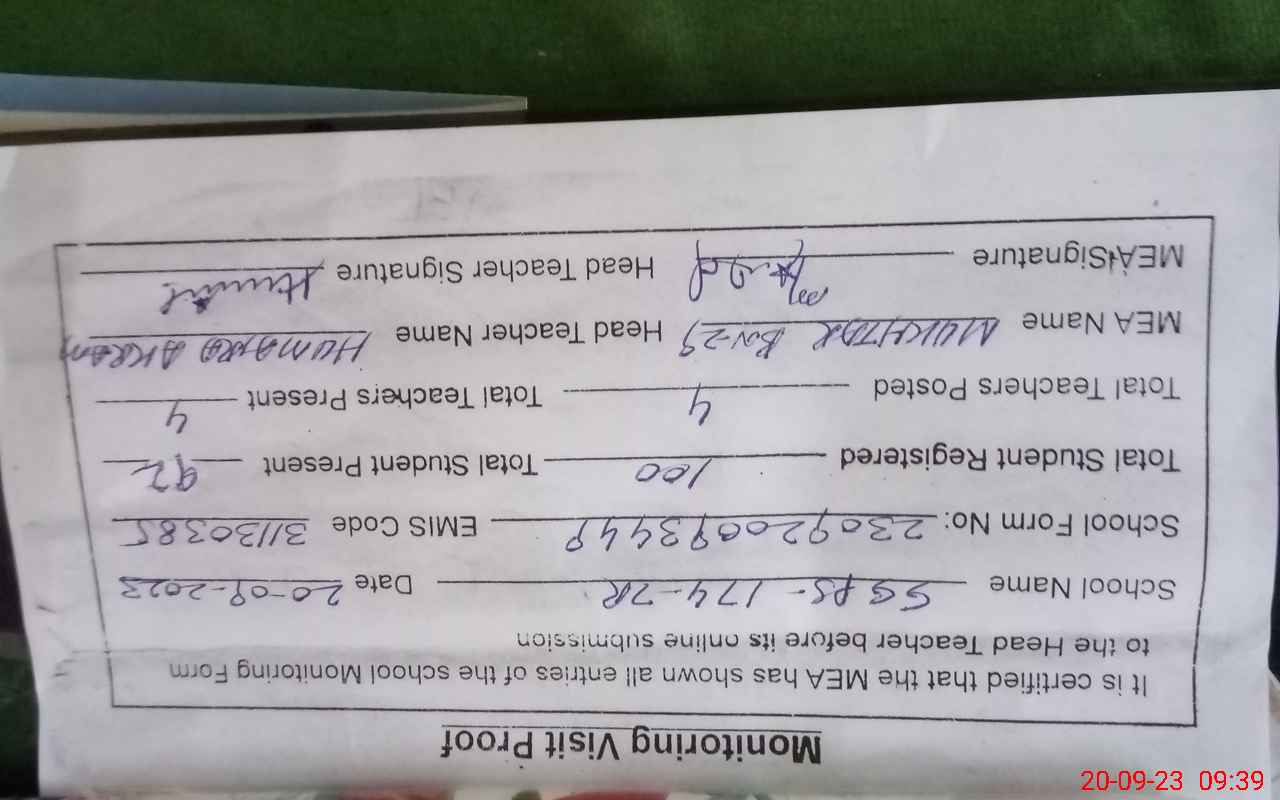 Monitoring Visit Proof
It is certified that the MEA has shown all entries of the school Monitoring Form
to the Head Teacher before its online submission
School Name GGPS-174-7R Date 20-09-2023
School Form No: 23092009344 EMIS Code 31130385
Total Student Registered 100 Total Student Present 92
Total Teachers Posted 4 Total Teachers Present 4
MEA Name MUKHTAR Bn-29 Head Teacher Name HUMAIRA AKRAM
MEA Signature Head Teacher Signature
20-09-23 09:39